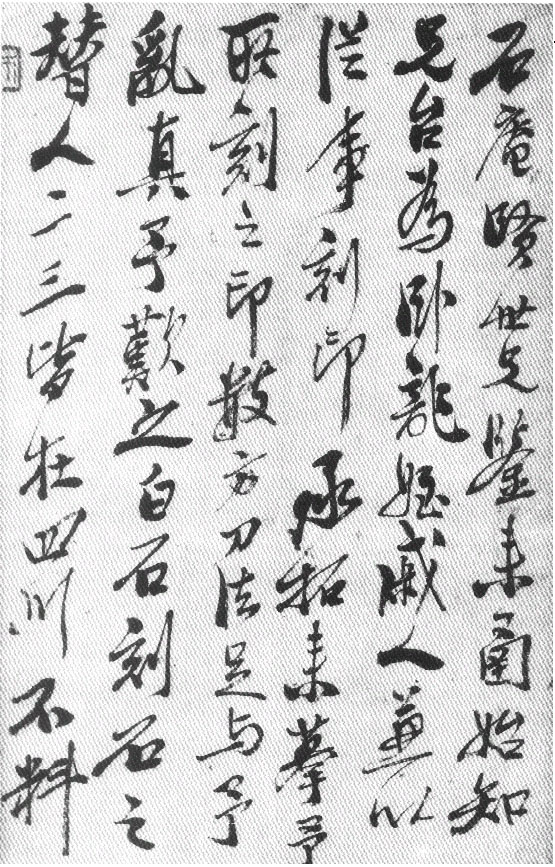 石庵賢世兄鑒来函始知
兄台為卧龍姪戚人兼以
從事刻印承拓来摹予
所刻之印數方刀法足与予
亂真予歎之白石刻石之
替人二三皆在四川不料